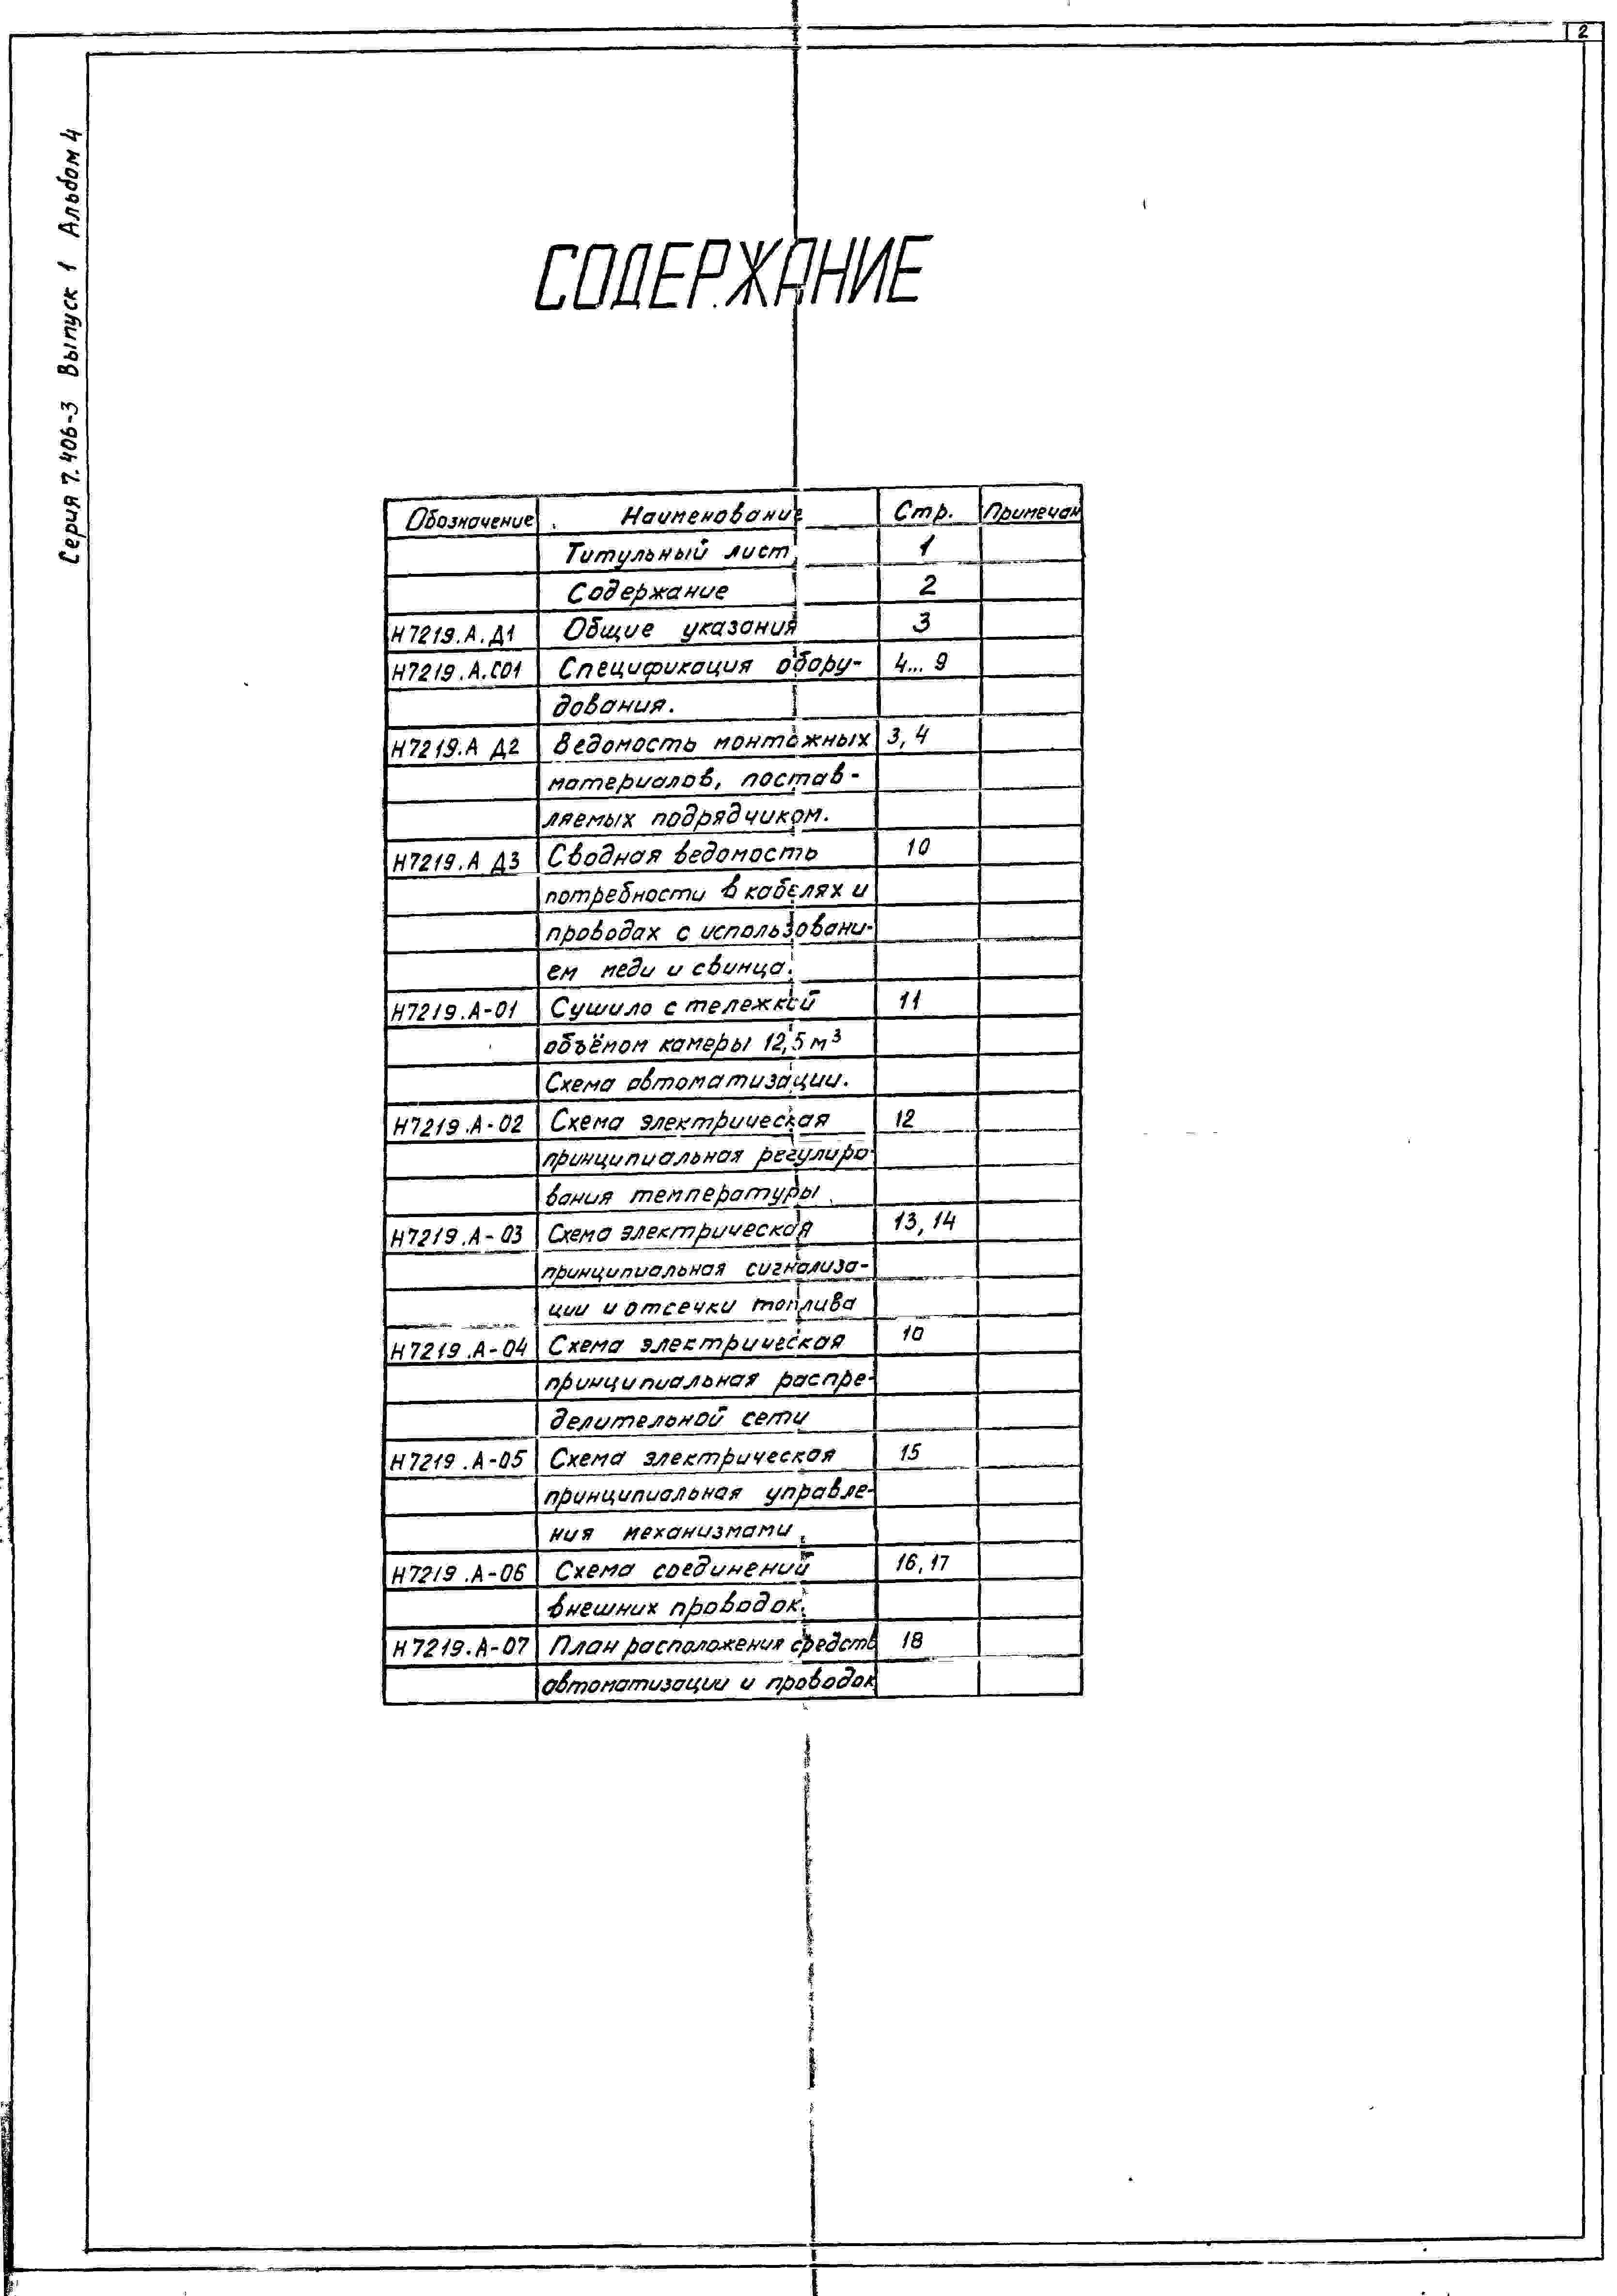 2
Серия 7.406-3 Выпуск 1 Альбом 4
СОДЕРЖАНИЕ
Обозначение Наименование Стр. Примечан
Титульный лист 1
Содержание 2
Н7219.А.Д1 Общие указания 3
Н7219.А.СО1 Спецификация обору- 4...9
дования.
Н7219.А Д2 Ведомость монтажных 3,4
материалов, постав-
ляемых подрядчиком.
Н7219.А Д3 Сводная ведомость 10
потребности в кабелях и
проводах с использовани-
ем меди и свинца.
Н7219.А-01 Сушило с тележкой 11
объёмом камеры 12,5 м³
Схема автоматизации.
Н7219.А-02 Схема электрическая 12
принципиальная регулиро-
вания температуры
Н7219.А-03 Схема электрическая 13,14
принципиальная сигнализа-
ции и отсечки топлива
Н7219.А-04 Схема электрическая 10
принципиальная распре-
делительной сети
Н7219.А-05 Схема электрическая 15
принципиальная управле-
ния механизмами.
Н7219.А-06 Схема соединений 16,17
внешних проводок.
Н7219.А-07 План расположения средств 18
автоматизации и проводок